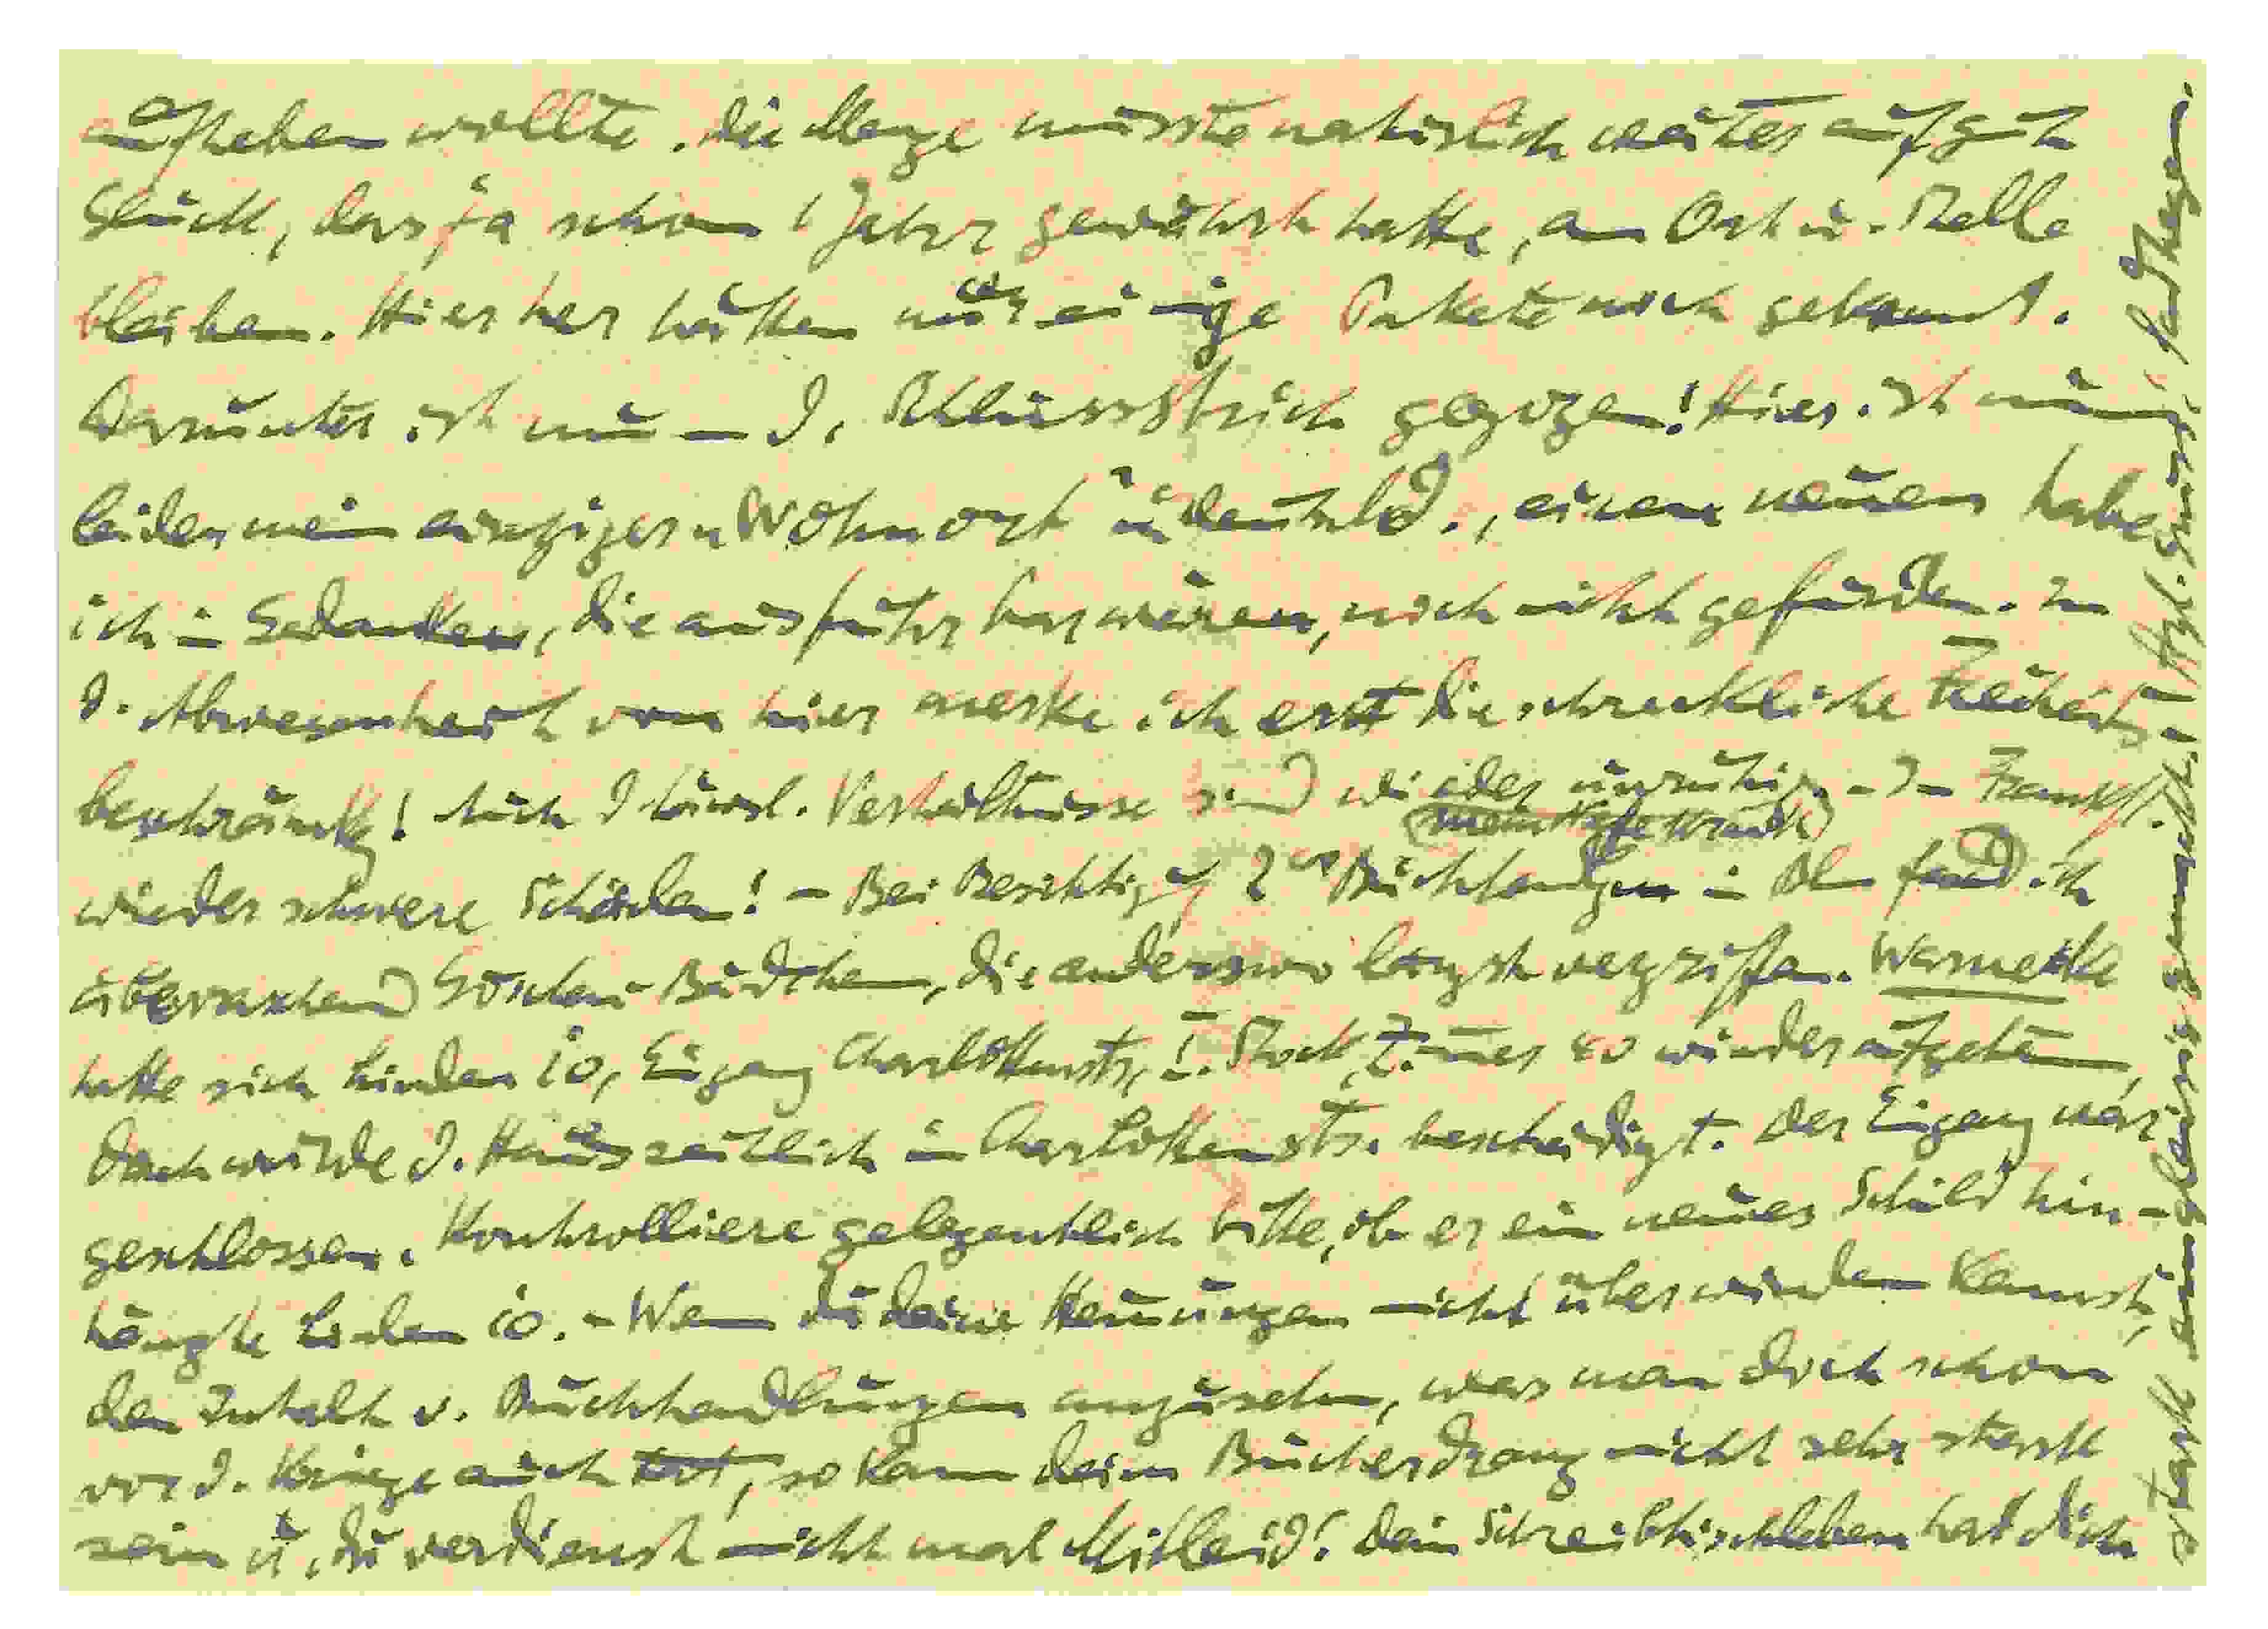 aufheben wollte. Die Menge müsste natürlich weiter auf gut
Glück, das ja schon 1 Jahr gewährt hatte, an Ort u. Stelle
bleiben. Hierher hätten nur einige Pakete noch gekonnt.
Darunter ist nun d. Schlussstrich gezogen! Hier ist nun
leider mein einziger Wohnort in Deutschld., einen neuen habe
ich in Gedanken, die ausführbar wären, noch nicht gefunden. In
d. Abwesenheit von hier merke ich erst die schreckliche Freiheits
beschränkg! Auch d häusl. Verhältnisse sind wieder unruhig. - In Frankf.
(mein Neffe krank)
wieder schwere Schäden! - Bei Besichtigg 2er Buchhandlgen in Bln fand ich
überraschend Göschen-Bändchen, die anderswo längst vergriffen. Warnecke
hatte sich Linden 10, Eingang Charlottenstr, I. Stock, Zimmer 40 wieder aufgetan,
doch wurde d. Haus seitlich in Charlottenstr. beschädigt. Der Eingang war
geschlossen. Kontrolliere gelegentlich bitte, ob er ein neues Schild hin-
hängte Linden 10. - Wenn du deine Hemmungen nicht überwinden kannst,
den Inhalt v. Buchhandlungen anzusehn, was man doch schon
vor d. Kriege auch tat, so kann dein Bücherdrang nicht sehr stark
sein u. du verdienst nicht mal Mitleid! Dein Schreibtischleben hat dich
stark einseitig gemacht! Hzl. Grüsse,